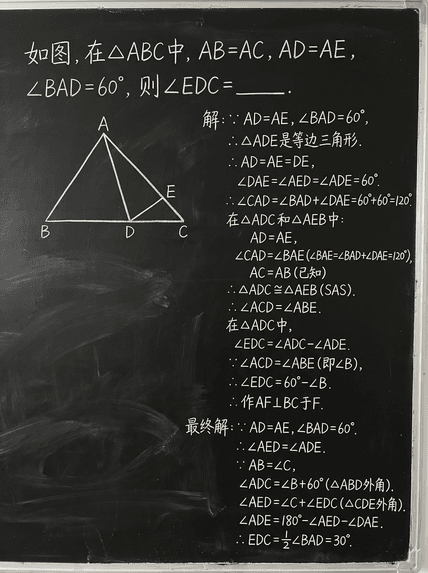 如图, 在△ABC中, AB=AC, AD=AE,
∠BAD=60°, 则∠EDC=____.
A
E
B
D
C
解:∵ AD=AE, ∠BAD=60°,
∴△ADE是等边三角形.
∴ AD=AE=DE,
∠DAE=∠AED=∠ADE=60°.
∴∠CAD=∠BAD+∠DAE=60°+60°=120°.
在△ADC和△AEB中:
AD=AE,
∠CAD=∠BAE(∠BAE=∠BAD+∠DAE=120°),
AC=AB(已知)
∴△ADC≌△AEB(SAS).
∴∠ACD=∠ABE.
在△ADC中,
∠EDC=∠ADC-∠ADE.
∵∠ACD=∠ABE(即∠B),
∴∠EDC=60°-∠B.
∴作AF⊥BC于F.
最终解:∵ AD=AE, ∠BAD=60°.
∴∠AED=∠ADE.
∵ AB=∠C,
∠ADC=∠B+60°(△ABD外角).
∠AED=∠C+∠EDC(△CDE外角).
∠ADE=180°-∠AED-∠DAE.
∴ EDC=1/2∠BAD=30°.